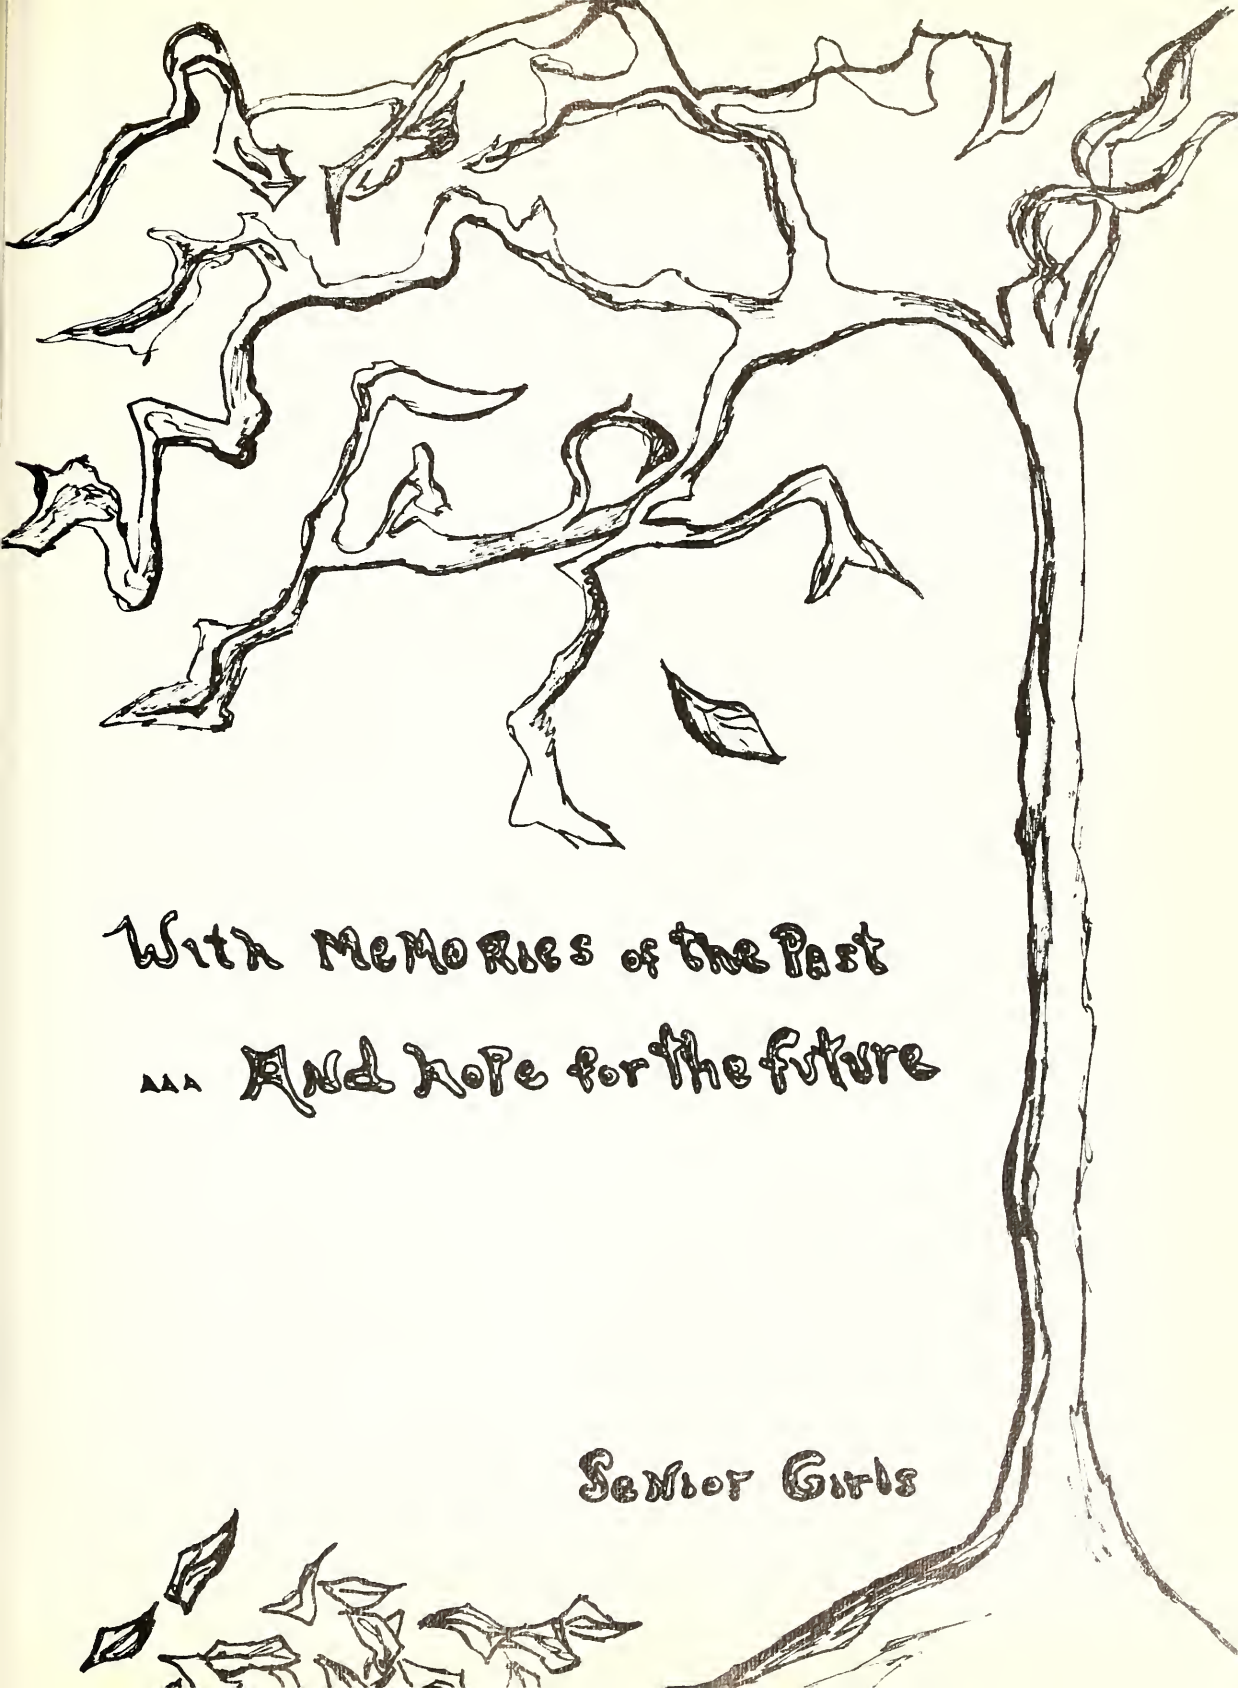 With MeMORies of the Past
... And hoPe for the future
SeNior Girls